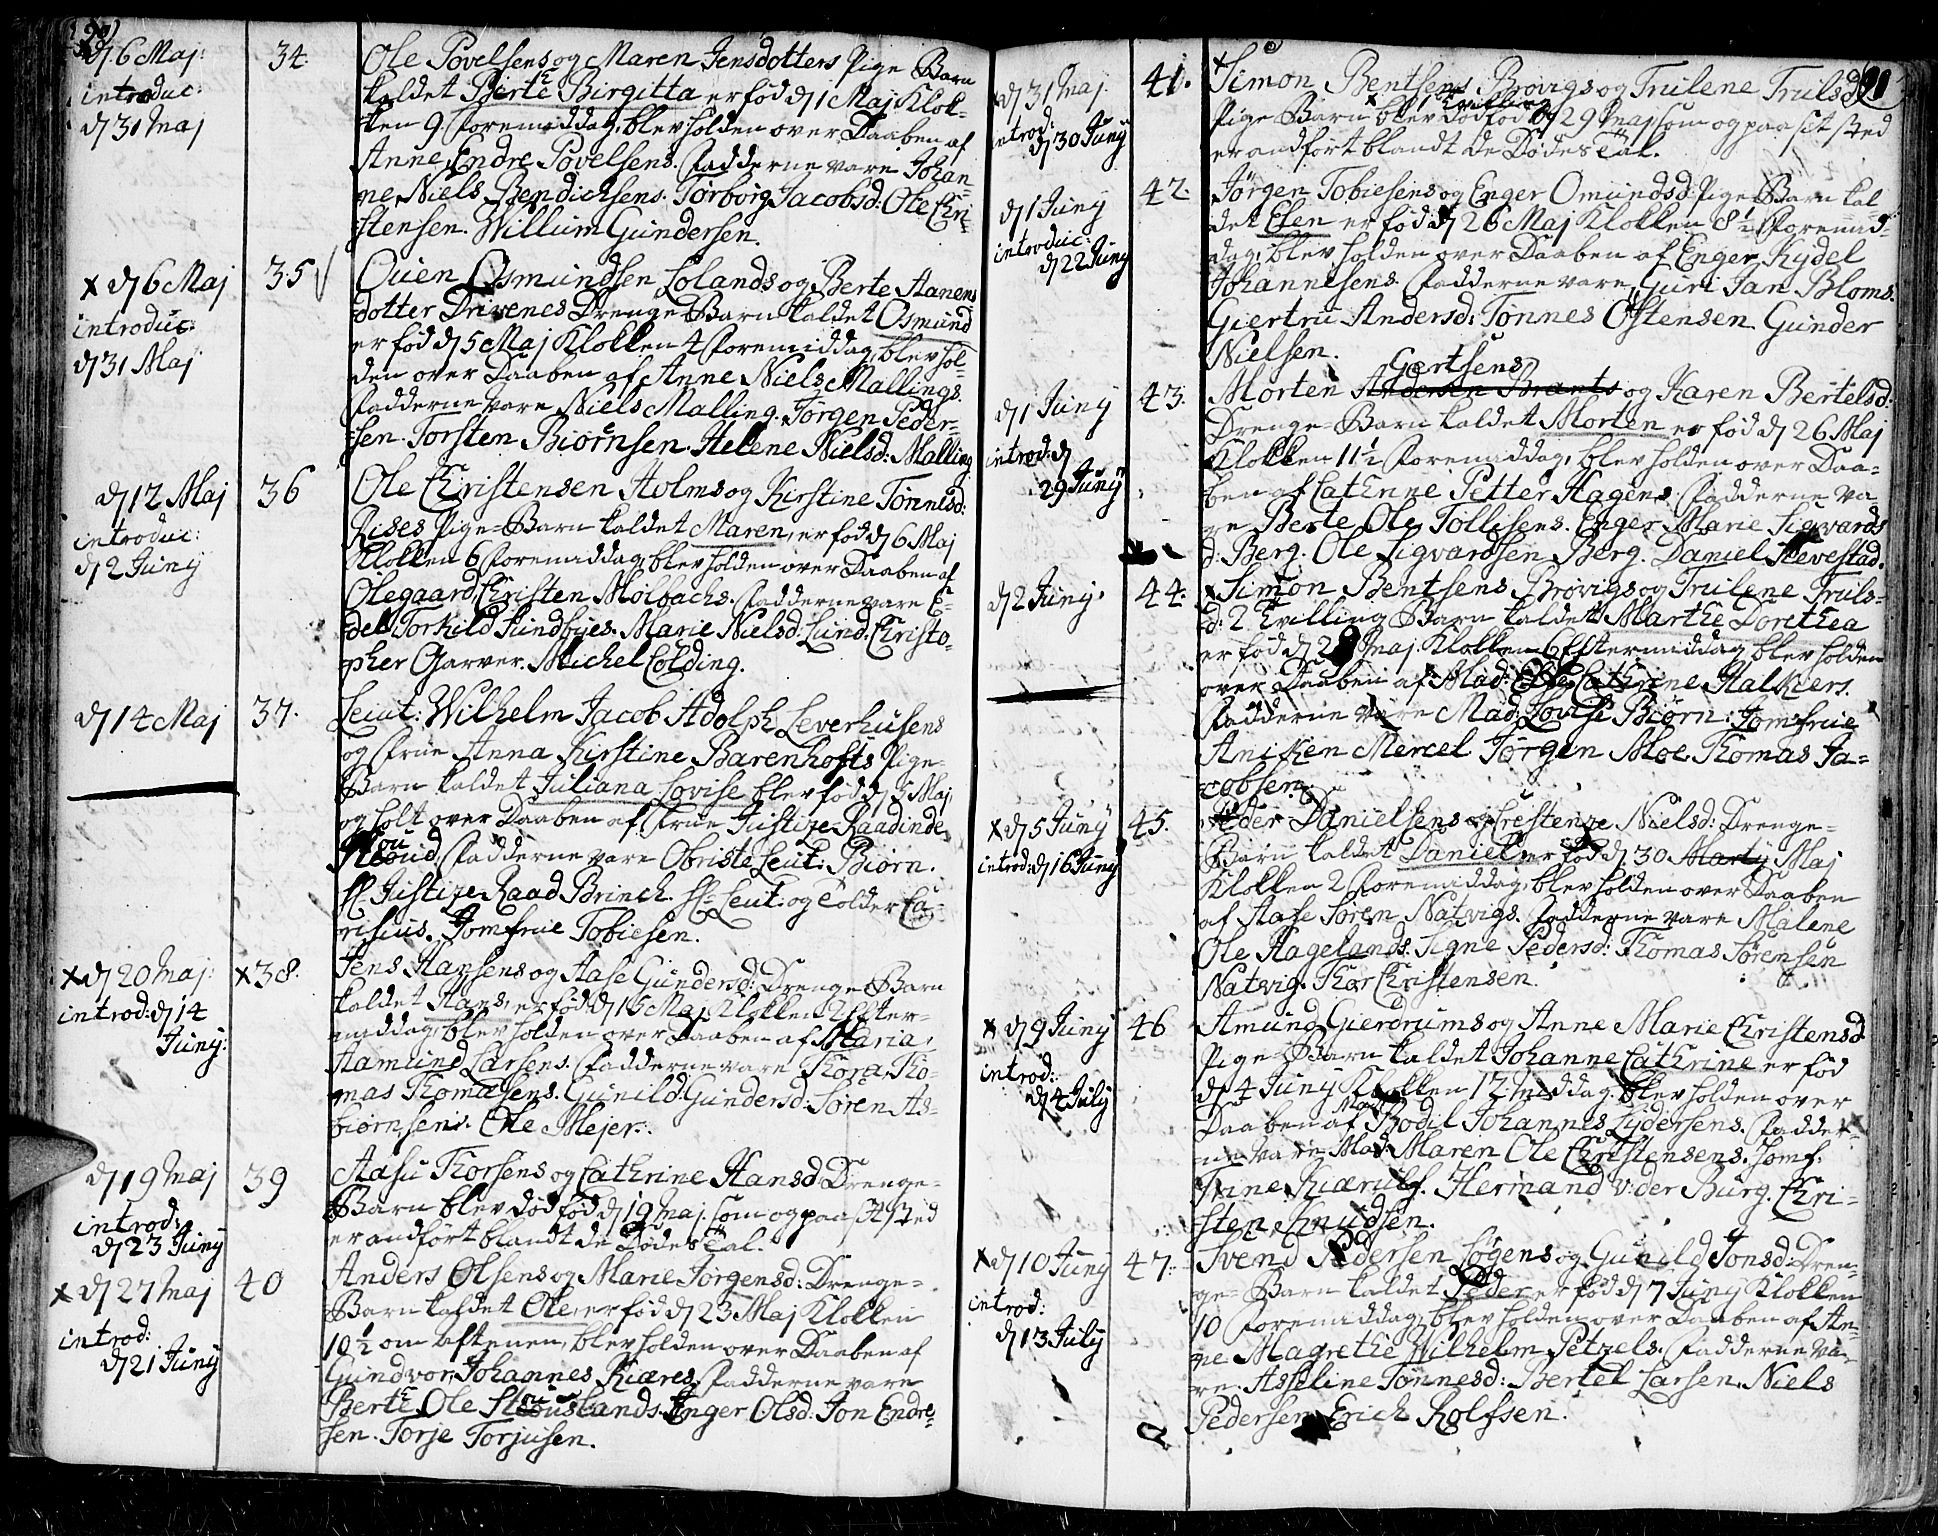 90
d 6 Maj:
introduc:
d 31 Maj
34.
Ole Povelsens og Maren Jensdotters Pige Barn
kaldet Berte Birgitta er fød d 1 Maj Klok-
ken 9 Formiddag, blev holden over Daaben af
Anne Endre Povelsens. Fadderne vare Johan-
ne Niels Bendichsens. Torborg Jacobsd: Ole Chri-
stensen. Willum Gundersen.
x d 6 Maj
introduc:
d 31 Maj
35
Ouen Osmundsen Lolands og Berte Aanens
dotter Drivenes Drenge Barn kaldet Osmund
er fød d 5 Maj Klokken 4 Foremiddag, blev hol-
den over Daaben af Anne Niels Mallings.
Fadderne vare Niels Malling. Jørgen Peder-
sen. Torsten Biørnsen. Helene Nielsd: Malling
d 12 Maj
introduc:
d 2 Juny
36
Ole Christensen Holms og Kirstine Tønnesd:
Rises Pige-Barn kaldet Maren, er fød d 6 Maj
Klokken 6 Foremiddag, blev holden over Daaben af
Olegaard Christen Molbachs. Fadderne vare E-
del Torkild Sundbyes. Marie Nielsd: Lund. Christo-
pher Garver. Michel Colding.
d 14 Maj
37.
Leut: Wilhelm Jacob Adolph Leverhusens
og Frue Anna Kirstine Barenhofts Pige-
Barn kaldet Juliana Lovise blev fød d 5 Maj
og holt over Daaben af Frue Justize Raadinde
Fadderne vare Obriste Leut: Biørn.
Hr Justize Raad Brinch. Hr Leut: og Tolder Ca-
risius. Jomfrue Tobiesen.
x d 20 Maj:
introd: d 14
Juny:
x 38.
Jens Hansens og Aase Gundersd: Drenge Barn
kaldet Hans, er fød d 15 Maj Klokken 2 Efter-
middag, blev holden over Daaben af Maria
Aamund Larsens. Fadderne vare Thora Tho-
mas Thomasens. Gunild Gundersd: Søren As-
biørnsens. Ole Mejer.
d 19 Maj
introd:
d 23 Juny
39
Aasu Thorsens og Cathrine Hansd: Drenge-
Barn blev død fød d 19 Maj, som og paa sit sted
er anført blandt de Dødes Tal.
x d 27 Maj
introd:
d 21 Juny
40
Anders Olsens og Marie Jørgensd: Drenge-
Barn kaldet Ole, er fød d 23 Maj Klokken
10 1/2 om aftenen, blev holden over Daaben af
Gundvor Johannes Kiæres, Fadderne vare
Berte Ole Inger Olsd. Jon Endre-
sen. Torje Torjusen.
91
x d 31 Maj
introd:
d 30 Juny
41.
Simon Bentsens Brøvigs og Trulene Trulsd:
Tvilling
Pige Barn blev dødfød d 29 Maj som og paa sit sted
er andført blandt de Dødes Tal.
d 1 Juny
introduc:
d 22 Juny
42.
Jørgen Tobiesens og Enger Omundsd: Pige-Barn kal-
det Elen er fød d 26 Maj Klokken 8 1/2 Foremid-
dag, blev holden over Daaben af Enger Kydel
Johannesens. Fadderne vare Guri Jan Bloms.
Giertru Andersd: Tønnes Østensen. Gunder
Nielsen.
d 1 Juny
introd: d
29 Juny
43.
Gertsens
Morten Andersen Brants og Karen Bertelsd:
Drenge-Barn kaldet Morten er fød d 26 Maj
Klokken 11 1/2 Foremiddag, blev holden over Daa-
ben af Cathrine Petter Hagens. Fadderne va-
re Berte Ole Tollisens. Enger Marie Sigvards
d: Berg. Ole Sigvardsen Berg. Daniel Stevestad.
d 2 Juny.
44.
x Simon Bentsens Brøvigs og Trulene Truls-
d: 2 Tvilling Barn kaldet Marthe Dorethea
er fød d 29 Maj Klokken 6 Eftermiddag blev holden
over Daaben af Mad: Cathrine Halkiers.
Fadderne vare Mad: Lovise Biørn: Jomfrue
Aniken Mercel Jørgen Moe. Thomas Ja-
cobsen.
x d 5 Juny
introd: d 16 Juny
45.
Peder Danielsens og Crestenze Nielsd: Drenge-
Barn kaldet Daniel er fød d 30 Marty Maj
Klokken 2 Foremiddag, blev holden over Daaben
af Aase Søren Natvigs. Fadderne vare Malene
Ole Hagelands. Signe Pedersd: Thomas Sørensen
Natvig. Thor Christensen.
x d 9 Juny
introd:
d 4 July
46
Amund Gierdrums og Anne Marie Christensd
Pige-Barn kaldet Johanne Cathrine er fød
d 4 Juny Klokken 12 Middag, blev holden over
Mad:
Daaben af Bodil Johannes Lydersens. Fadder-
ne vare Mad: Maren Ole Christensens. Jomf:
Trine Kiærulf. Hermand v: der Burg. Chri-
sten Knudsen.
x d 10 Juny
introd:
d 13 July
47.
Svend Pedersen Løgens og Gunild Jonsd: Dren-
ge-Barn kaldet Peder er fød d 7 Juny Klokken
10 Foremiddag, blev holden over Daaben af An-
ne Magrethe Wilhelm Petzels. Fadderne va-
re. Asseline Tønnesd: Bertel Larsen. Niels
Pedersen Erich Rolfsen.